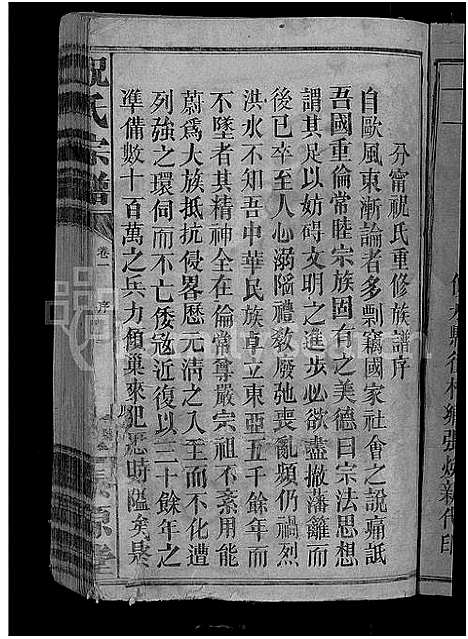 修水縣行村鄉張煥新代印
分甯祝氏重修族譜序
自歐風東漸論者多剽竊國家社會之說痛詆
吾國重倫常睦宗族固有之美德曰宗法思想
謂其足以妨碍文明之進步必欲盡撤藩籬而
後已卒至人心溺陷禮教廢弛喪亂頻仍禍烈
洪水不知吾中華民族卓立東亞五千餘年而
不墜者其精神全在倫常尊嚴宗祖不紊用能
蔚爲大族抵抗侵畧歷元清之入主而不化遭
列強之環伺而不亡倭寇近復以三十餘年之
準備數十百萬之兵力傾巢來犯恧時隘矣
祝氏宗譜
卷一
序
源堂